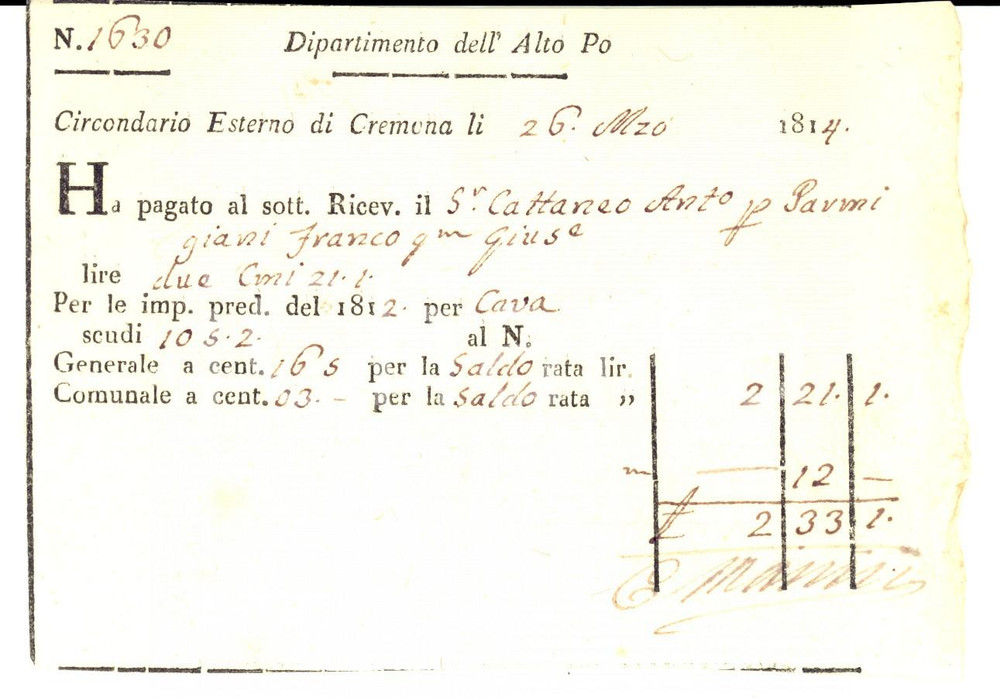 N. 1630 Dipartimento dell' Alto Po
Circondario Esterno di Cremona li 26. Mzo 1814.
Ha pagato al sott. Ricev. il Sr. Cattaneo Anto p Parmi
giani Franco qm Giuse
lire due Cmi 21. 1.
Per le imp. pred. del 1812. per Cava
scudi 10 5. 2. al N.
Generale a cent. 16 5 per la Saldo rata lir.
Comunale a cent. 03. - per la Saldo rata ,, 2 21. 1.
12 —
£ 2 33 1.